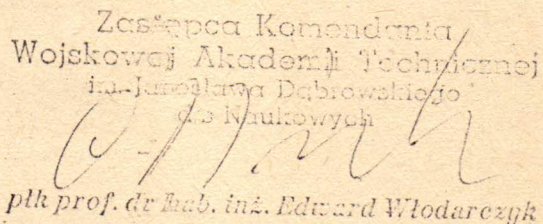 Zastępca Komendanta
Wojskowej Akademii Technicznej
im. Jarosława Dąbrowskiego
d/s Naukowych
płk prof. dr hab. inż. Edward Włodarczyk